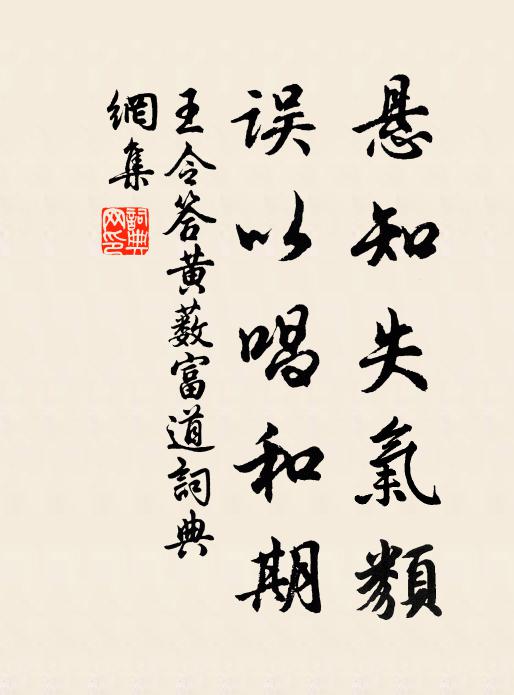 悬知失氣類
误以唱和期
王令答黄薮富道詞典
網集
詞典
网印